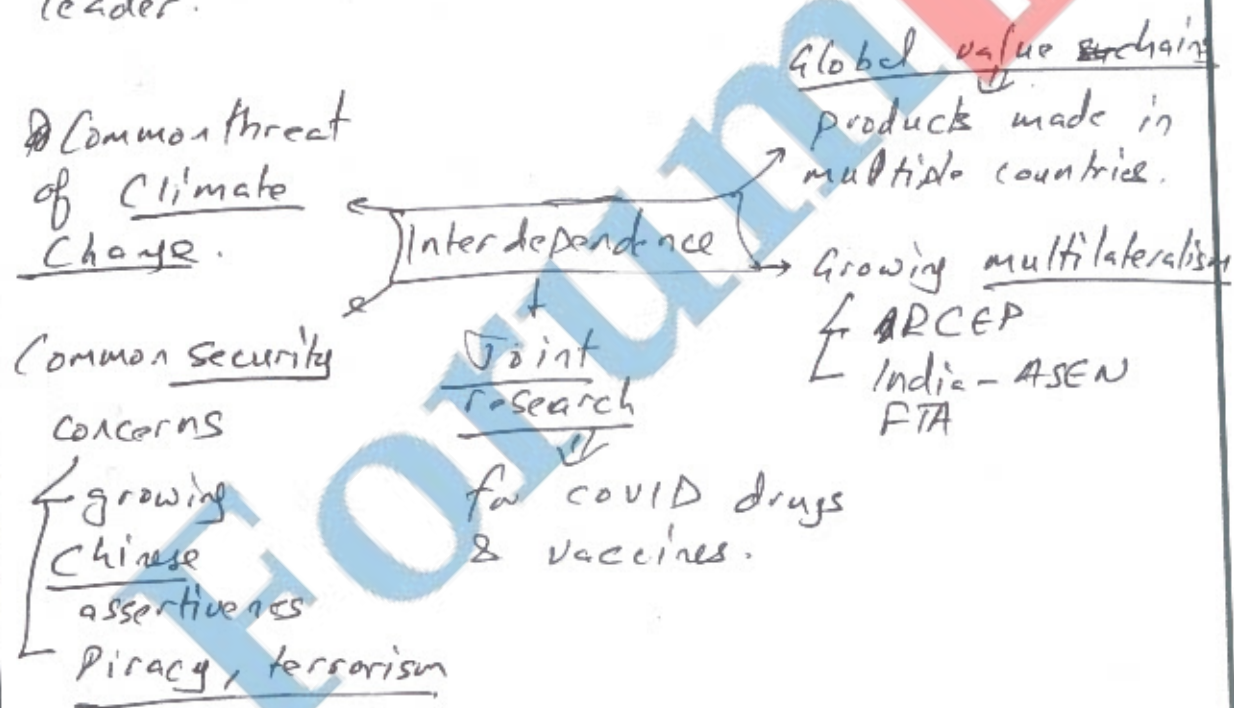 leader.
Global value chains
products made in
multiple countries.
Common threat
of Climate
Change.
Interdependence
Growing multilateralism
RCEP
India - ASEN
FTA
Common security
concerns
growing
Chinese
assertivenes
Piracy, terrorism
Joint
research
for COVID drugs
& vaccines.
Forum